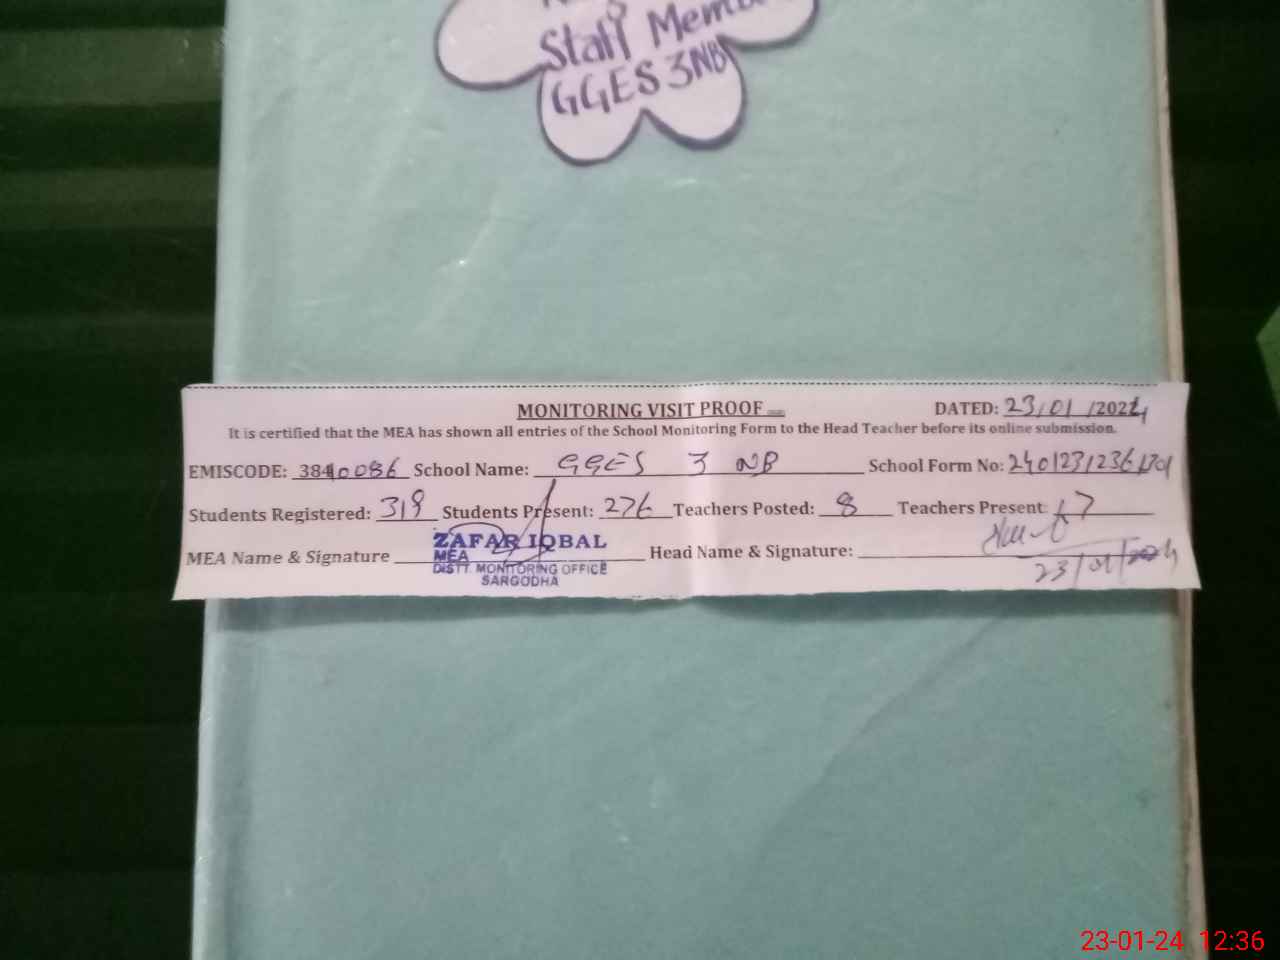 Staff Mem
GGES 3NB
MONITORING VISIT PROOF
DATED: 23/01/2024
It is certified that the MEA has shown all entries of the School Monitoring Form to the Head Teacher before its online submission.
EMISCODE: 38410086 School Name: GGES 3 NB School Form No:
Students Registered: 319 Students Present: 276 Teachers Posted: 8 Teachers Present: 7
MEA Name & Signature Head Name & Signature:
ZAFAR IQBAL
MEA
DISTT. MONITORING OFFICE
SARGODHA
23/01/2024
23-01-24 12:36